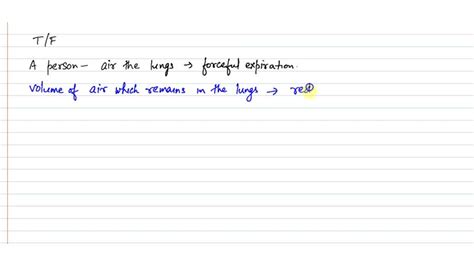 T/F
A person- air the lungs → forceful expiration.
Volume of air which remains in the lungs → resi